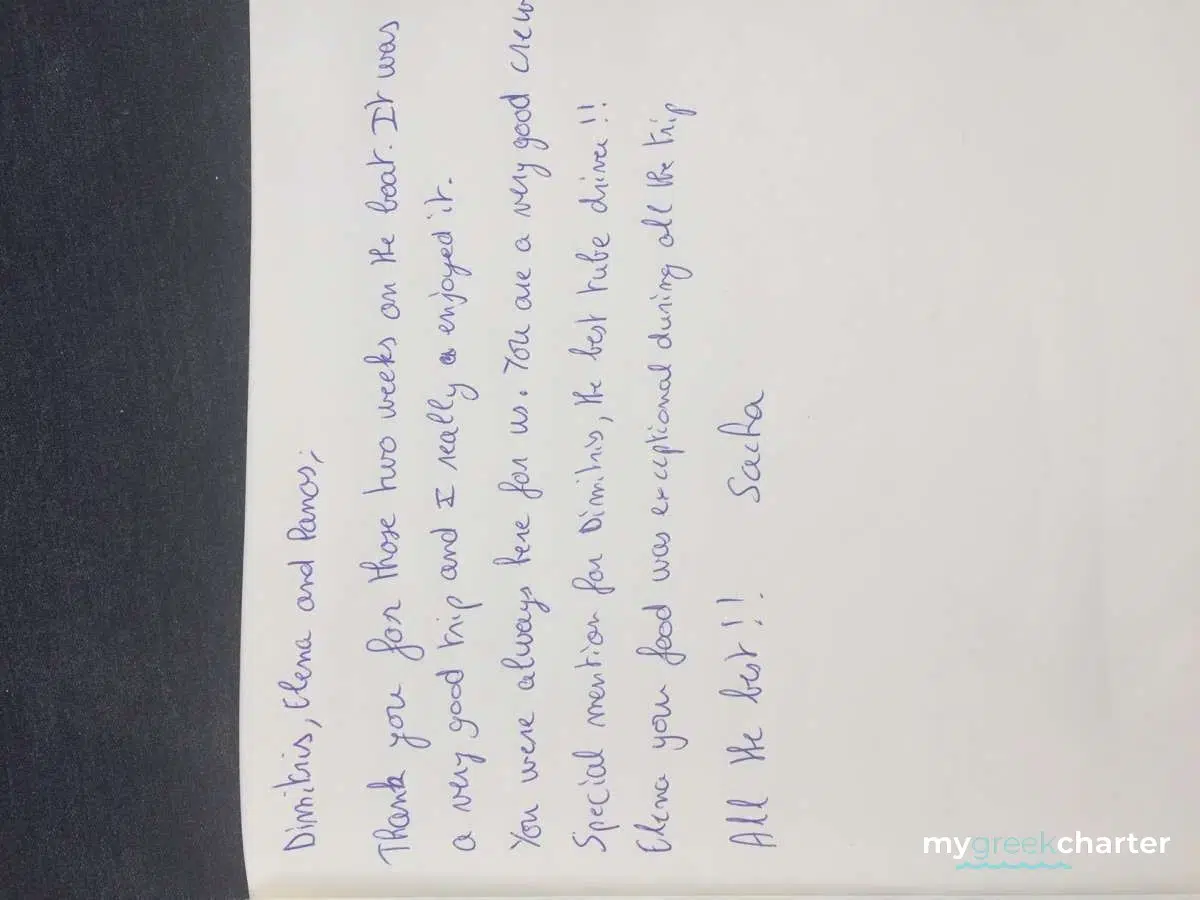 Dimitris, Elena and Panos;
Thank you for those two weeks on the boat. It was
a very good trip and I really enjoyed it.
You were always here for us. You are a very good crew
Special mention for Dimitris, the best tube driver!!
Elena you food was exceptional during all the trip
All the best!! Sacha
mygreekcharter